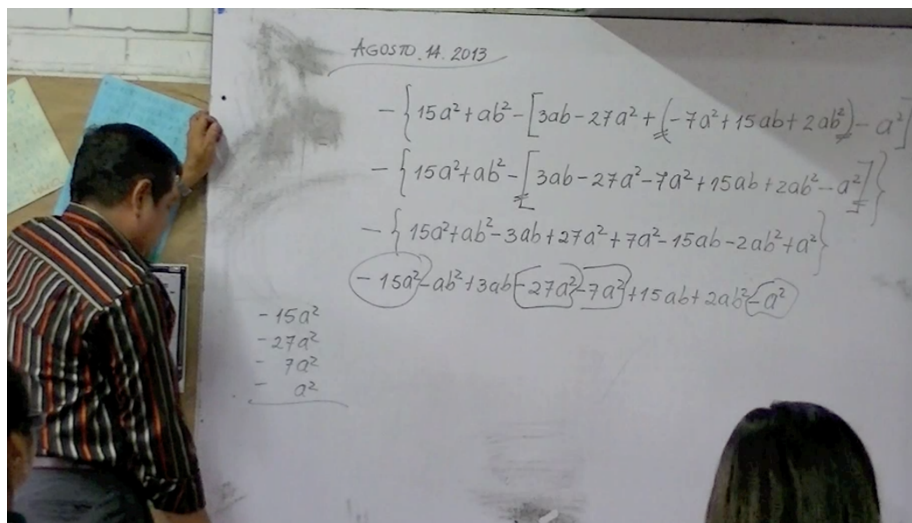 AGOSTO.14.2013
-{15a²+ab²-[3ab-27a²+(-7a²+15ab+2ab²)-a²]
-{15a²+ab²-[3ab-27a²-7a²+15ab+2ab²-a²]}
-{15a²+ab²-3ab+27a²+7a²-15ab-2ab²+a²}
-15a²-ab²+3ab-27a²-7a²+15ab+2ab²-a²
-15a²
-27a²
- 7a²
- a²